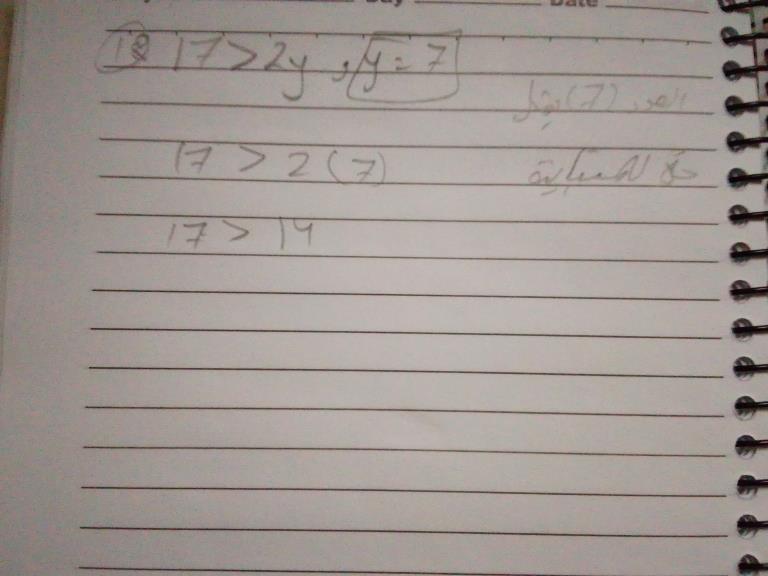 Day Date
18 17 > 2y , y = 7
العدد (7) يمثل
17 > 2 (7)
حل للمتباينة
17 > 14